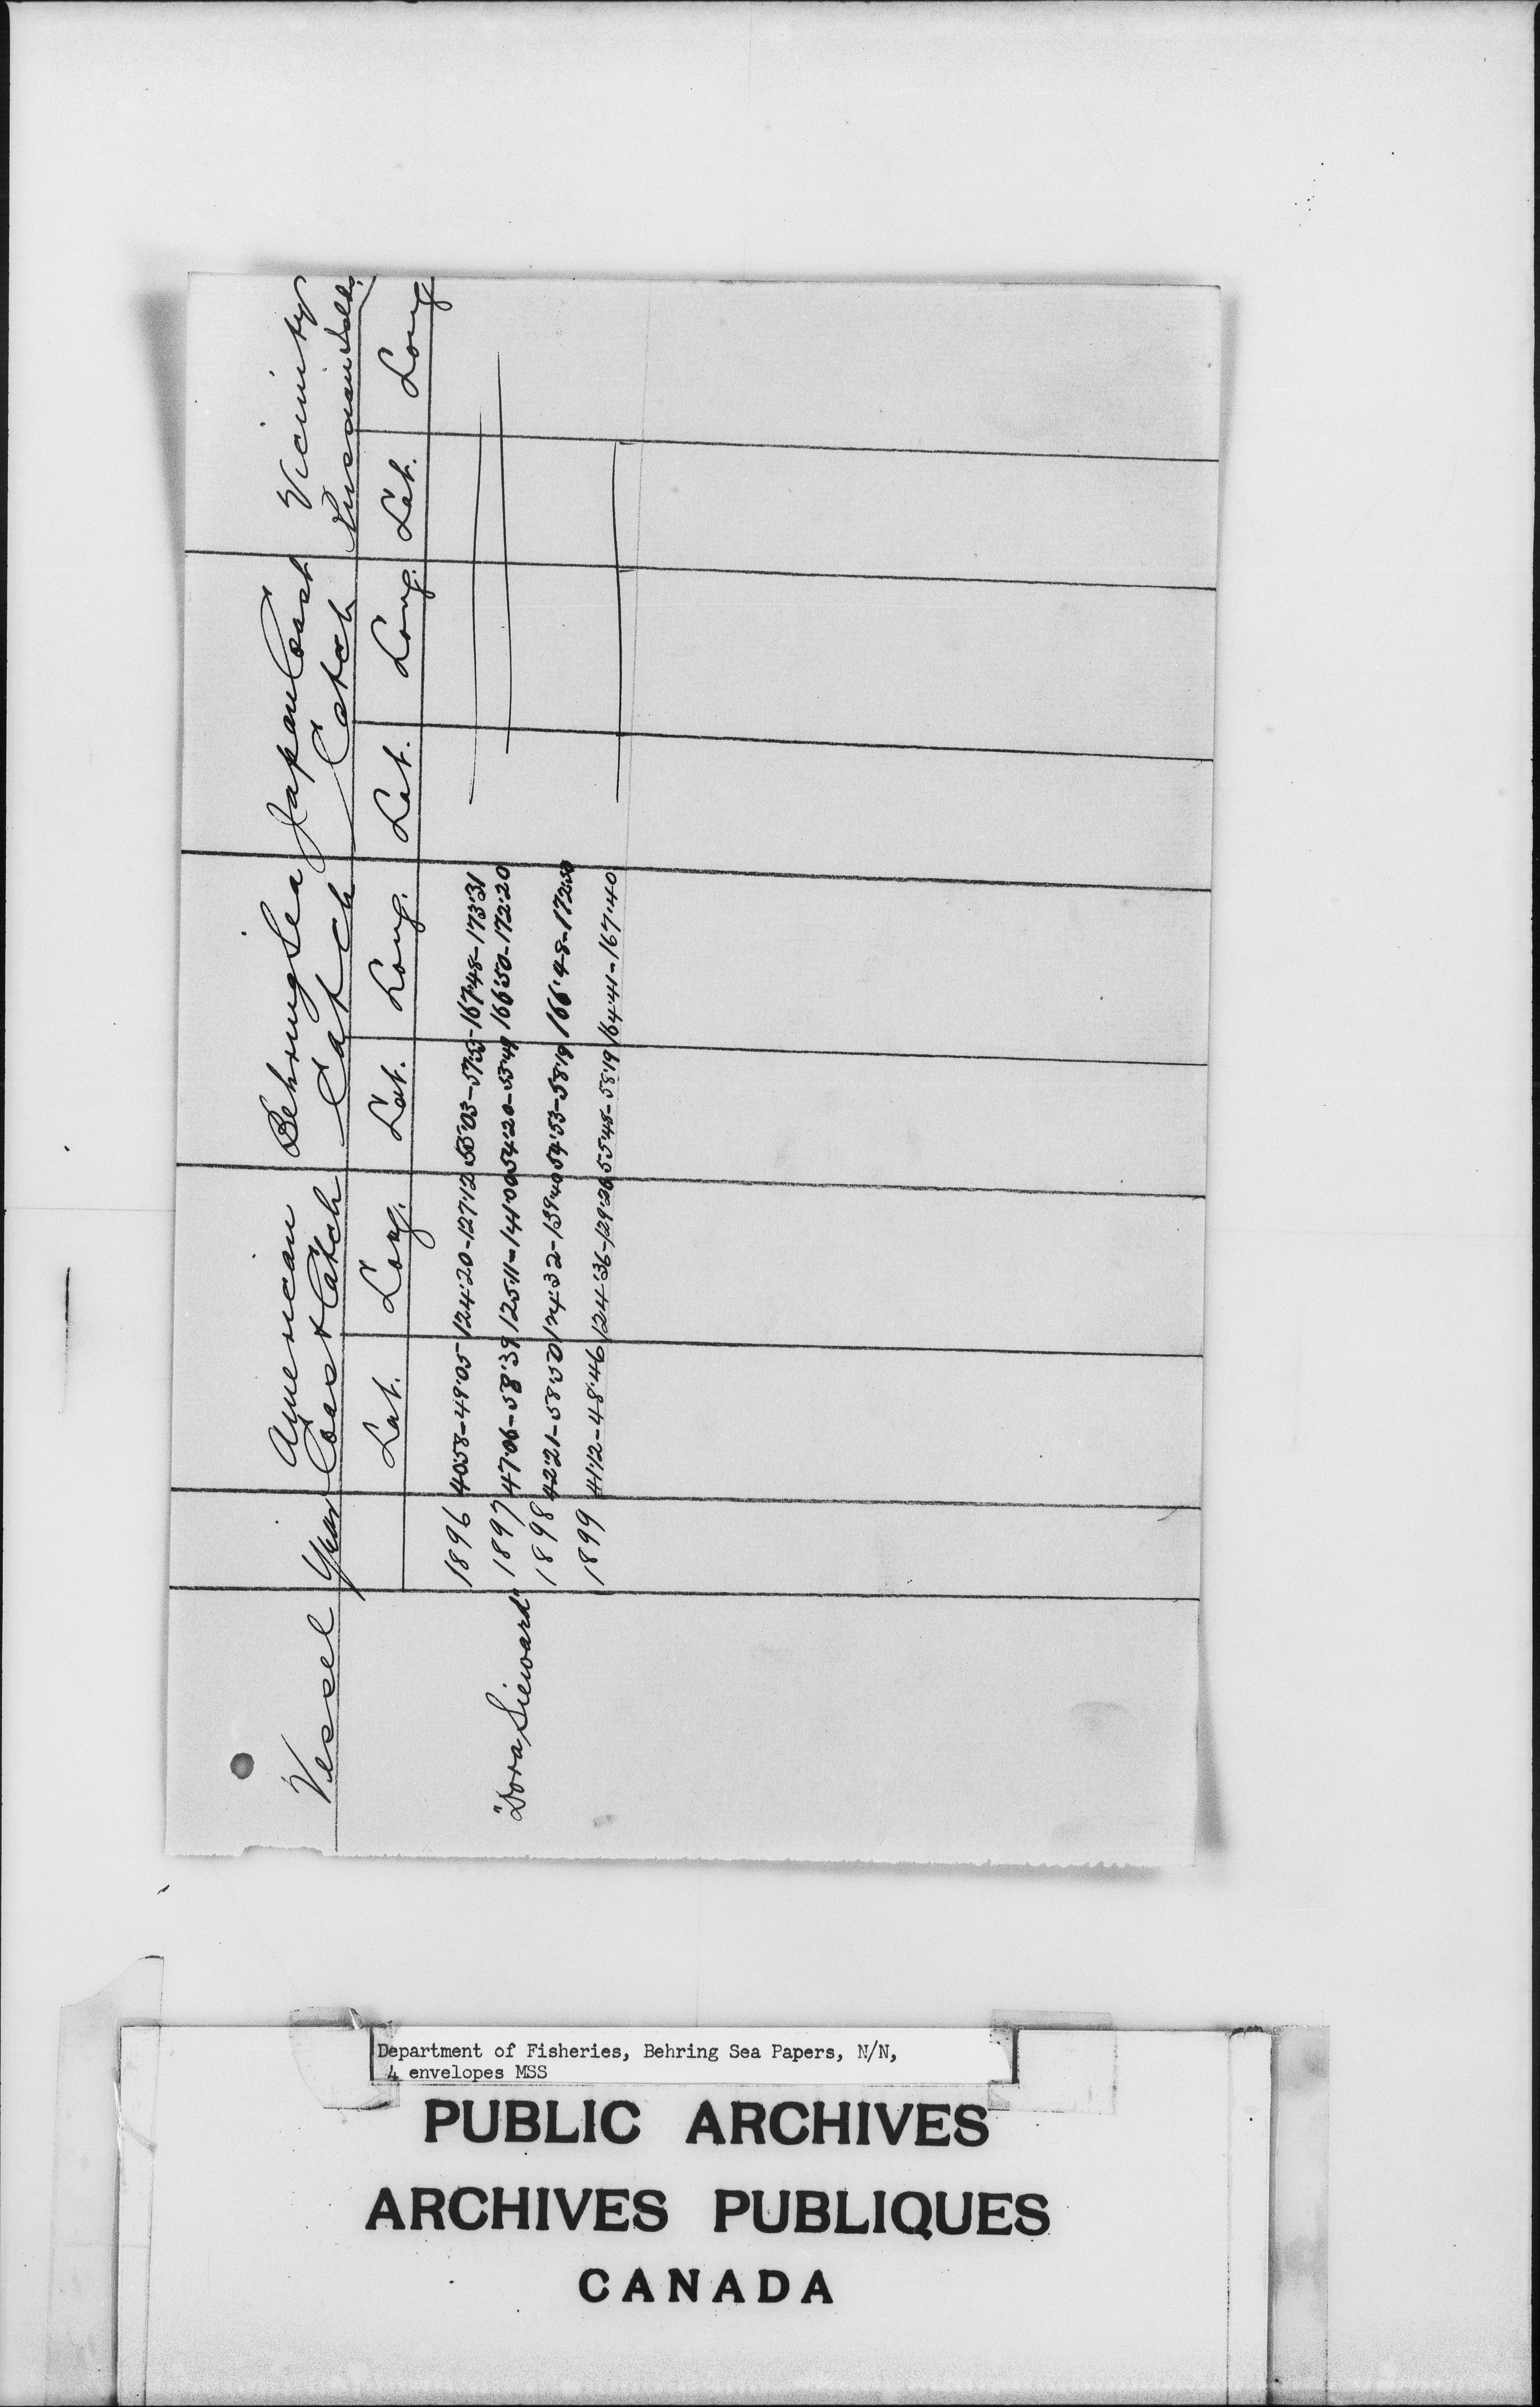 Vessel Year American Coast Catch Behring Sea Catch Japan Coast Catch Vicinity Russian Islds.
Lat. Long. Lat. Long. Lat. Long. Lat. Long
1896 40.58-49.05 124.20-127.12 55.03-57.53 167.48-173.31
"Dora Sieward" 1897 47.06-58.39 125.11-141.00 54.20-53.49 166.50-172.20
1898 42.21-58.50 124.32-139.40 54.53-58.19 166.48-172.50
1899 41.12-48.46 124.36-129.26 55.48-58.19 164.41-167.40
Department of Fisheries, Behring Sea Papers, N/N,
4 envelopes MSS
PUBLIC ARCHIVES
ARCHIVES PUBLIQUES
CANADA